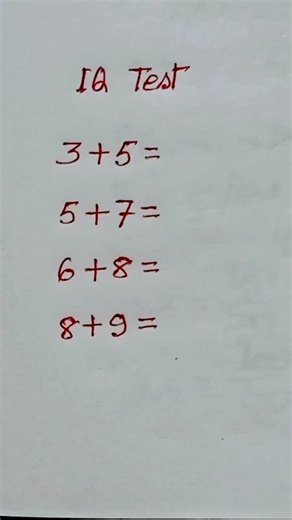 IQ Test
3+5=
5+7=
6+8=
8+9=